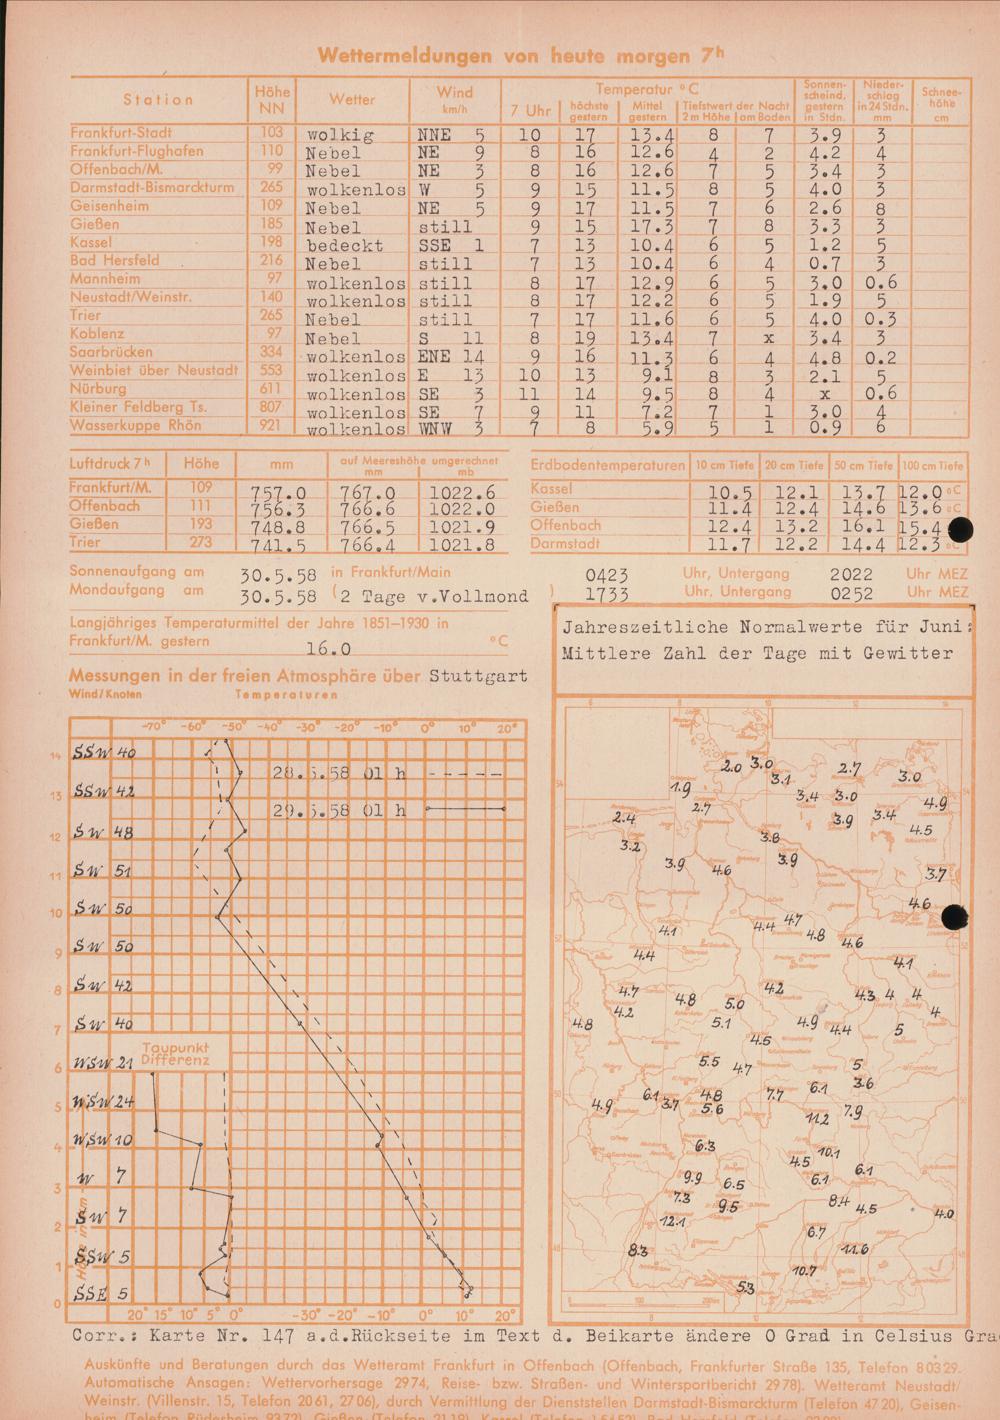 Wettermeldungen von heute morgen 7h
Station Höhe NN Wetter Wind km/h Temperatur °C Sonnenschein, gestern in Stdn. Niederschlag in 24 Stdn. mm Schneehöhe cm
7 Uhr höchste gestern Mittel gestern Tiefstwert der Nacht 2 m Höhe am Boden
Frankfurt-Stadt 103 wolkig NNE 5 10 17 13.4 8 7 3.9 3
Frankfurt-Flughafen 110 Nebel NE 9 8 16 12.6 4 2 4.2 4
Offenbach/M. 99 Nebel NE 3 8 16 12.6 7 5 3.4 3
Darmstadt-Bismarckturm 265 wolkenlos W 5 9 15 11.5 8 5 4.0 3
Geisenheim 109 Nebel NE 5 9 17 11.5 7 6 2.6 8
Gießen 185 Nebel still 9 15 17.3 7 8 3.3 3
Kassel 198 bedeckt SSE 1 7 13 10.4 6 5 1.2 5
Bad Hersfeld 216 Nebel still 7 13 10.4 6 4 0.7 3
Mannheim 97 wolkenlos still 8 17 12.9 6 5 3.0 0.6
Neustadt/Weinstr. 140 wolkenlos still 8 17 12.2 6 5 1.9 5
Trier 265 Nebel still 7 17 11.6 6 5 4.0 0.3
Koblenz 97 Nebel S 11 8 19 13.4 7 x 3.4 3
Saarbrücken 334 wolkenlos ENE 14 9 16 11.3 6 4 4.8 0.2
Weinbiet über Neustadt 553 wolkenlos E 13 10 13 9.1 8 3 2.1 5
Nürburg 611 wolkenlos SE 3 11 14 9.5 8 4 x 0.6
Kleiner Feldberg Ts. 807 wolkenlos SE 7 9 11 7.2 7 1 3.0 4
Wasserkuppe Rhön 921 wolkenlos WNW 3 7 8 5.9 5 1 0.9 6
Luftdruck 7h Höhe mm auf Meereshöhe umgerechnet mm mb
Frankfurt/M. 109 757.0 767.0 1022.6
Offenbach 111 756.3 766.6 1022.0
Gießen 193 748.8 766.5 1021.9
Trier 273 741.5 766.4 1021.8
Erdbodentemperaturen 10 cm Tiefe 20 cm Tiefe 50 cm Tiefe 100 cm Tiefe
Kassel 10.5 12.1 13.7 12.0 °C
Gießen 11.4 12.4 14.6 13.6 °C
Offenbach 12.4 13.2 16.1 15.4
Darmstadt 11.7 12.2 14.4 12.3 °C
Sonnenaufgang am 30.5.58 in Frankfurt/Main 0423 Uhr, Untergang 2022 Uhr MEZ
Mondaufgang am 30.5.58 (2 Tage v.Vollmond ) 1733 Uhr, Untergang 0252 Uhr MEZ
Langjähriges Temperaturmittel der Jahre 1851–1930 in
Frankfurt/M. gestern 16.0 °C
Messungen in der freien Atmosphäre über Stuttgart
Wind/Knoten Temperaturen
-70° -60° -50° -40° -30° -20° -10 0° 10° 20°
14 SSW 40
28.5.58 01 h
13 SSW 42
29.5.58 01 h
12 SW 48
11 SW 51
10 SW 50
9 SW 50
8 SW 42
7 SW 40
Taupunkt
Differenz
6 WSW 21
5 WSW 24
4 WSW 10
3 W 7
2 SW 7
1 SSW 5
0 SSE 5
20° 15° 10° 5° 0° -30° -20° -10° 0° 10° 20°
Jahreszeitliche Normalwerte für Juni:
Mittlere Zahl der Tage mit Gewitter
2.0 3.0 3.1 2.7 3.0
1.9 2.7 3.4 3.0 4.9
2.4 3.9 3.4 4.5
3.2 3.8
3.9 4.6 3.9 3.7
4.6
4.1 4.4 4.7 4.8 4.6
4.4 4.1
4.7 4.8 5.0 4.2 4.3 4 4
4.2 4
4.8 5.1 4.9 4.4 5
4.5
5.5 4.7 5
6.1 3.6
6.1 4.8 7.7
4.9 3.7 5.6 11.2 7.9
6.3 10.1
4.5 6.1
9.9 6.5 6.1
7.3 9.5 8.4 4.5 4.0
12.1 6.7
8.3 11.6
10.7
5.3
Corr.: Karte Nr. 147 a.d.Rückseite im Text d. Beikarte ändere O Grad in Celsius Gra
Auskünfte und Beratungen durch das Wetteramt Frankfurt in Offenbach (Offenbach, Frankfurter Straße 135, Telefon 80329.
Automatische Ansagen: Wettervorhersage 2974, Reise- bzw. Straßen- und Wintersportbericht 2978). Wetteramt Neustadt/
Weinstr. (Villenstr. 15, Telefon 2061, 2706), durch Vermittlung der Dienststellen Darmstadt-Bismarckturm (Telefon 4720), Geisen-
heim (Telefon Rüdesheim